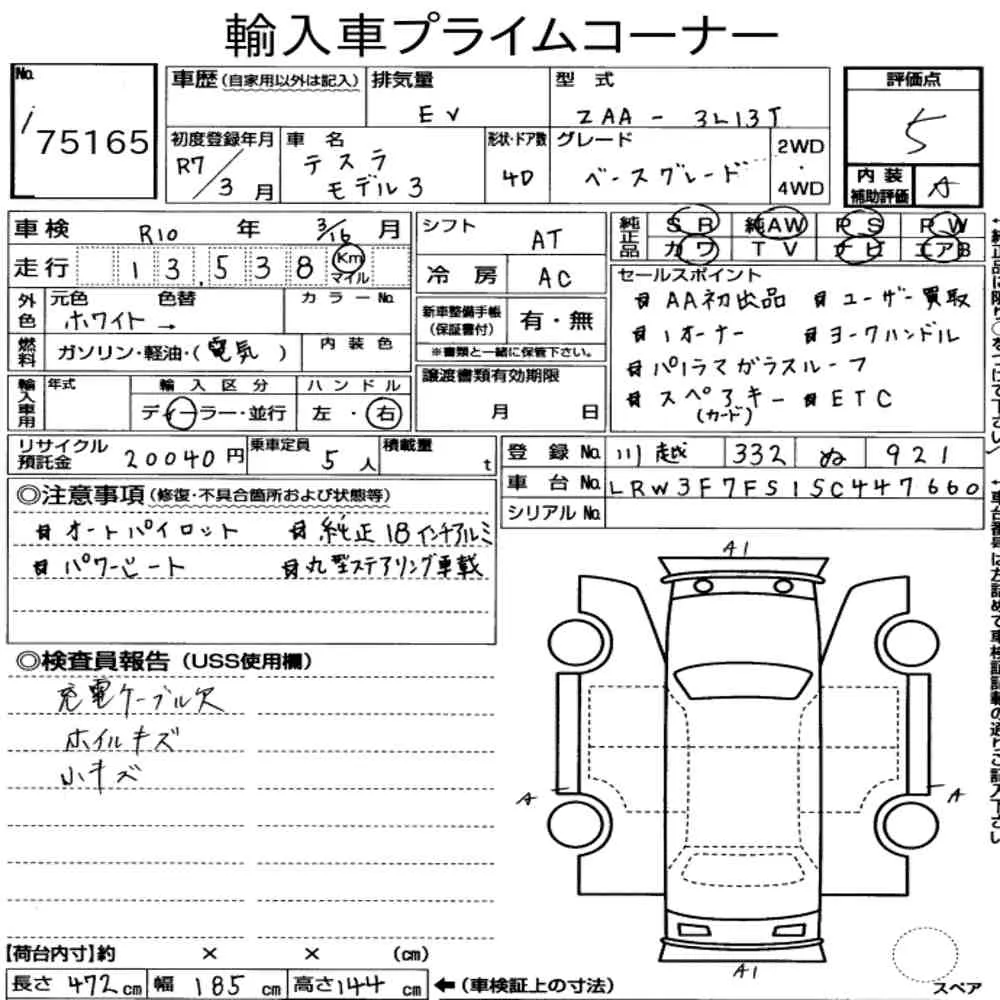 輸入車プライムコーナー
No.
1 75165
車歴(自家用以外は記入)
排気量
EV
型式
ZAA - 3L13T
評価点
5
内装補助評価
A
初度登録年月
R7/3月
車名
テスラ
モデル3
形状・ドア数
4D
グレード
ベースグレード
2WD
・
4WD
車検 R10 年 3/16 月
走行 13,538 Km マイル
外色
元色 色替 カラーNo.
ホワイト →
燃料
ガソリン・軽油・(電気)
内装色
輸入車用
年式
輸入区分
ディーラー・並行
ハンドル
左・右
シフト AT
冷房 AC
新車整備手帳(保証書付) 有・無
※書類と一緒に保管下さい。
譲渡書類有効期限
月 日
純正品
SR 純AW PS PW
カワ TV ナビ エアB
セールスポイント
★AA初出品 ★ユーザー買取
★1オーナー ★ヨークハンドル
★パノラマガラスルーフ
★スペアキー ★ETC
(カード)
リサイクル預託金 20040円
乗車定員 5人
積載量 t
登録No. 川越 332 ぬ 921
車台No. LRW3F7FS1SC447660
シリアルNo.
◎注意事項(修復・不具合箇所および状態等)
★オートパイロット ★純正18インチアルミ
★パワーシート ★丸型ステアリング車載
◎検査員報告(USS使用欄)
充電ケーブル欠
ホイルキズ
小キズ
A1
A
A
A1
スペア
【荷台内寸】約 × × (cm)
長さ 472cm 幅 185cm 高さ 144cm ←(車検証上の寸法)